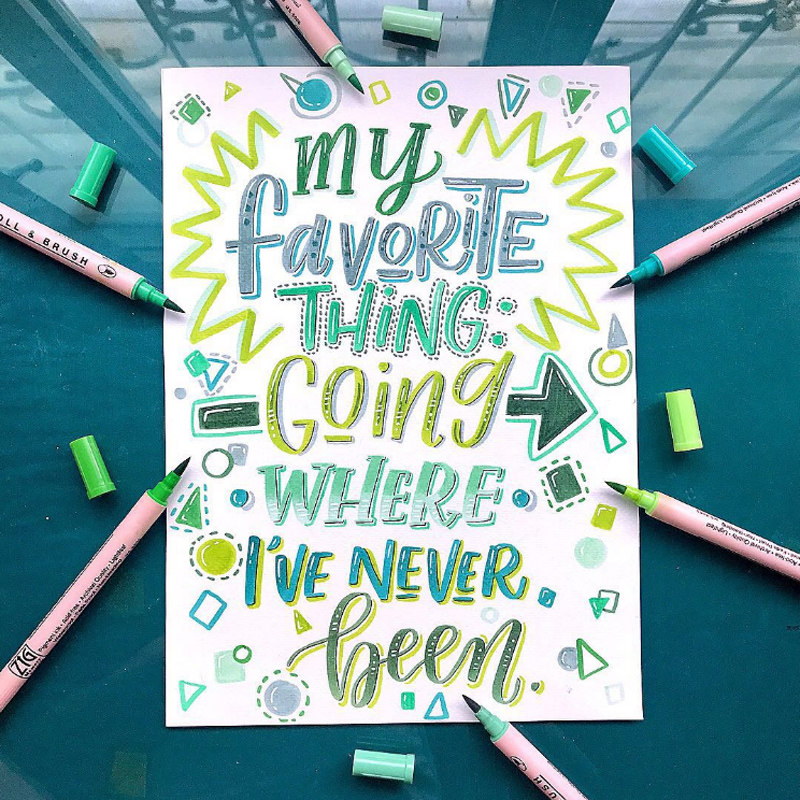 my
favorite
THiNG:
Going
WHERE
I'VE NEVER
been.
OLL & BRUSH
ZIG